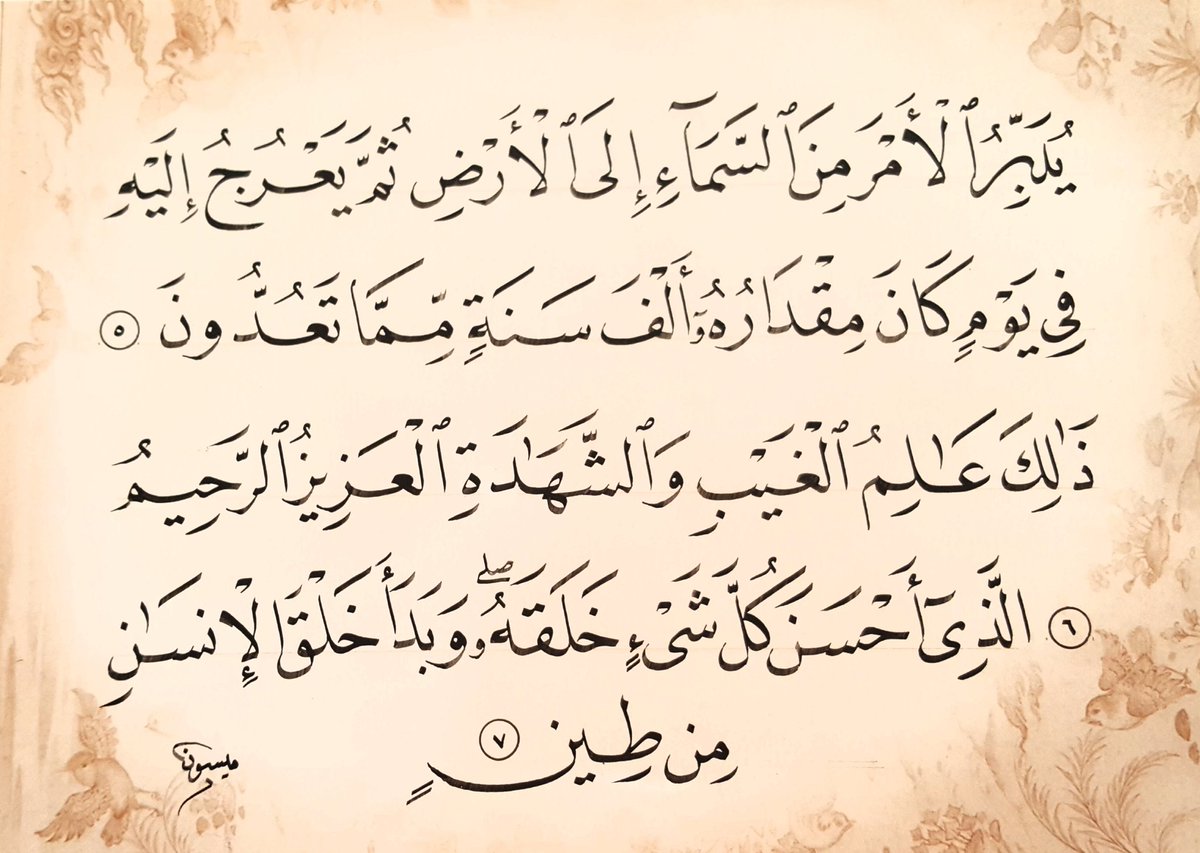 يُدَبِّرُ ٱلْأَمْرَ مِنَ ٱلسَّمَآءِ إِلَى ٱلْأَرْضِ ثُمَّ يَعْرُجُ إِلَيْهِ
فِى يَوْمٍ كَانَ مِقْدَارُهُۥٓ أَلْفَ سَنَةٍ مِّمَّا تَعُدُّونَ ٥
ذَٰلِكَ عَـٰلِمُ ٱلْغَيْبِ وَٱلشَّهَـٰدَةِ ٱلْعَزِيزُ ٱلرَّحِيمُ
٦ الَّذِىٓ أَحْسَنَ كُلَّ شَىْءٍ خَلَقَهُۥ ۖ وَبَدَأَ خَلْقَ الْإِنسَـٰنِ
مِن طِينٍ ٧
ميسون